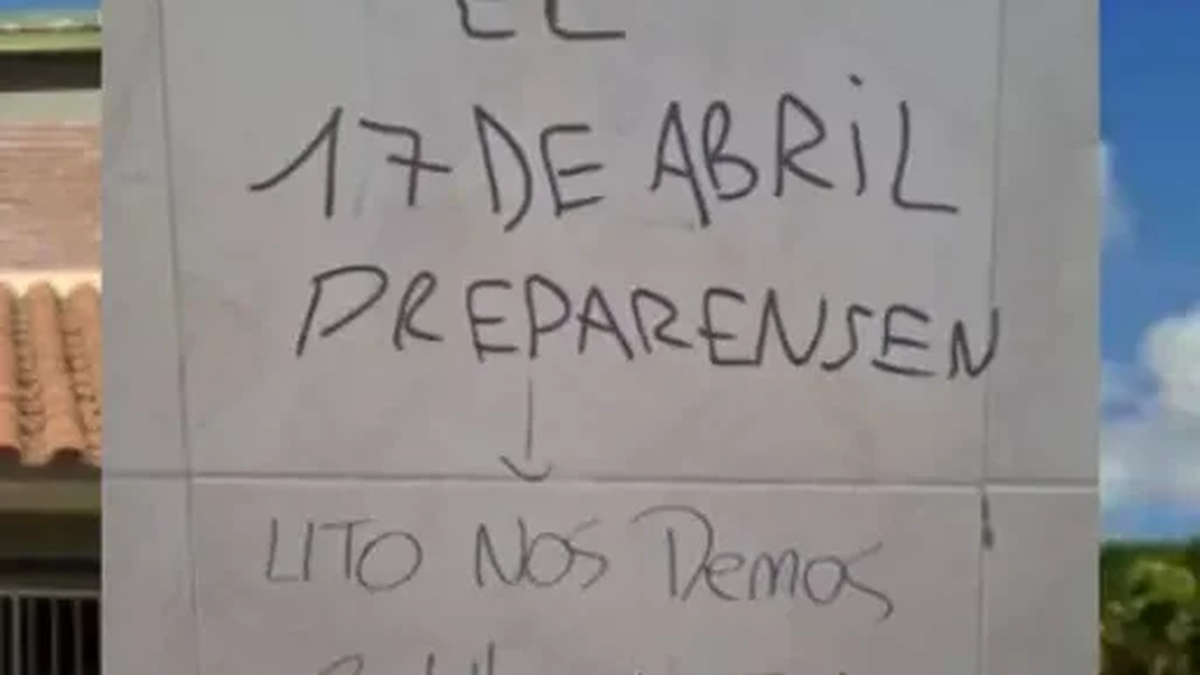 EL
17 DE ABRIL
PREPARENSEN
LITO NOS Demos